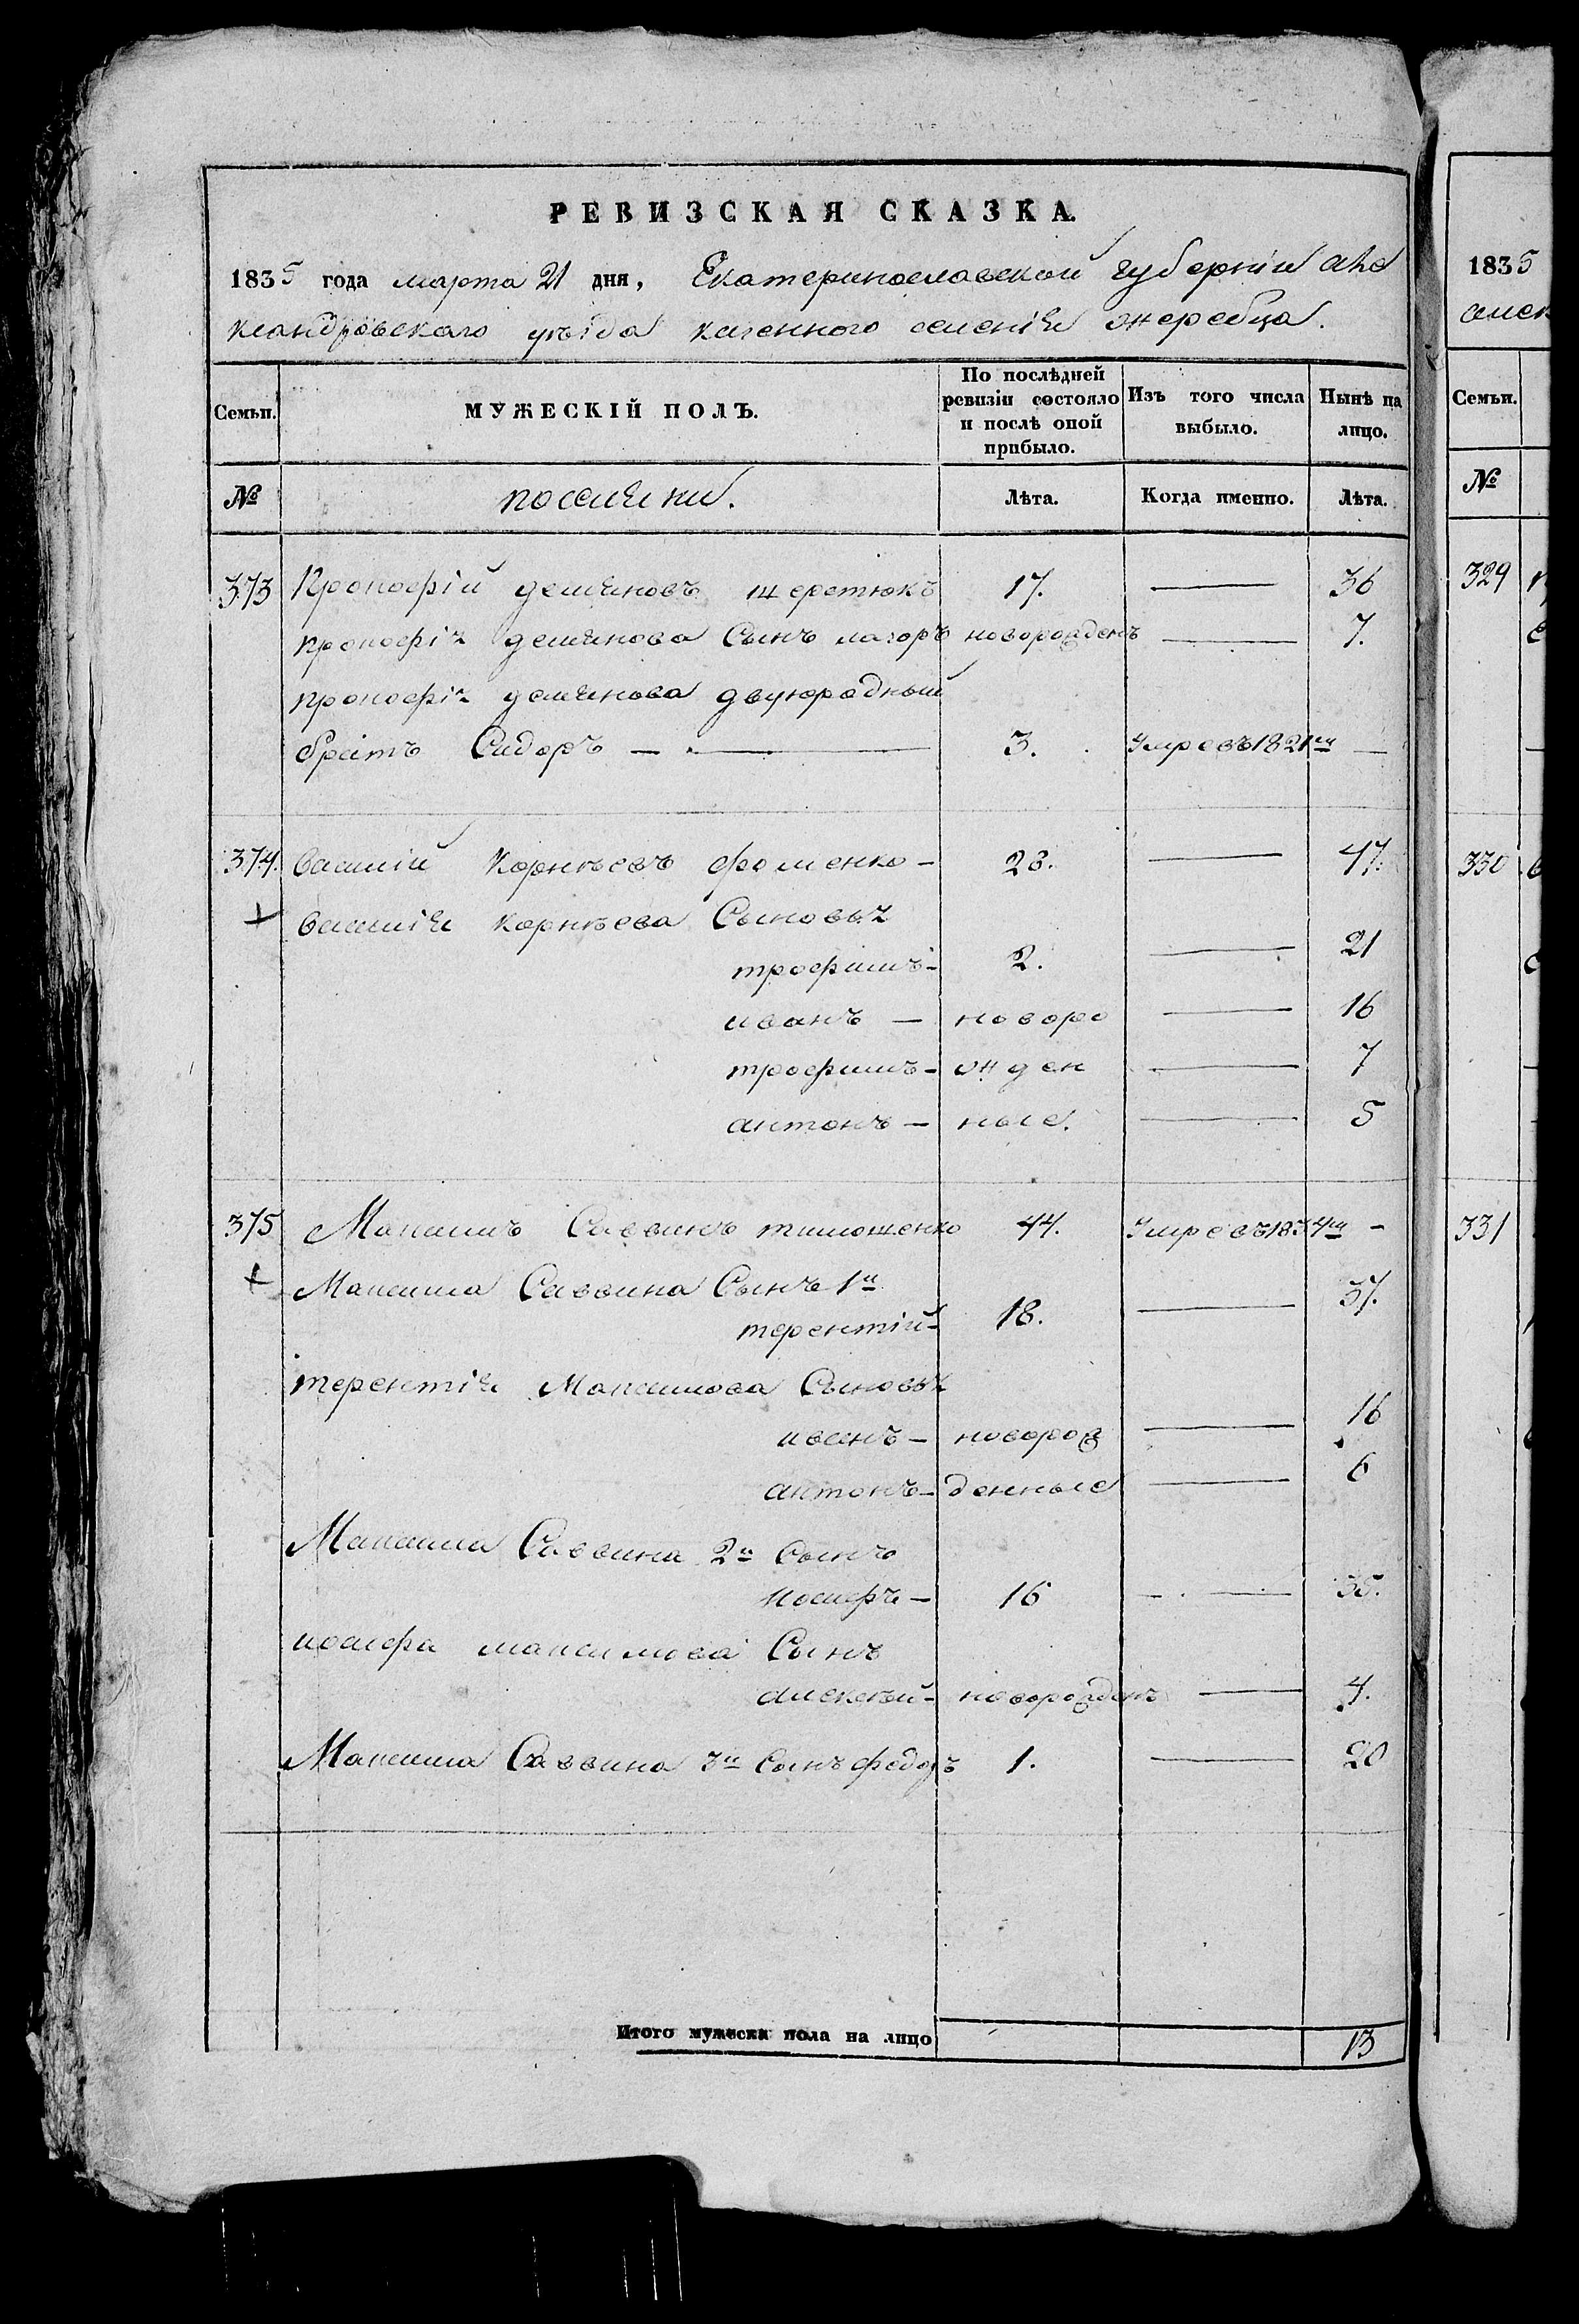 РЕВИЗСКАЯ СКАЗКА.
1835 года марта 21 дня, Екатеринославской губерніи але
ксандровского уѣзда казенного селенія жеребца.
Семьи. МУЖЕСКІЙ ПОЛЪ. По послѣдней ревизіи состояло и послѣ оной прибыло. Изъ того числа выбыло. Нынѣ на лицо.
№ поселяни. Лѣта. Когда именно. Лѣта.
373 Прокофій демяновъ шеретюкъ 17. — 36
прокофія демянова Сынъ назоръ новорожденъ — 7.
прокофія демянова двуюродный
братъ Сидоръ — 3. Умре въ 1821м —
374. василій Корнѣевъ фоменко — 28. — 47.
+ василія корнѣева Сыновья
трофимъ — 2. — 21
иванъ — новоро — 16
трофимъ — жден — 7
антонъ — ные. — 5
375 Максимъ Саввинъ тимошенко 44. Умре въ 1834м —
+ Максима Саввина Сынъ 1й
терентій — 18. — 37.
терентія Максимова Сыновья
иванъ — новорож — 16
антонъ — денные — 6
Максима Саввина 2й Сынъ
иосифъ — 16 — 35.
иосифа максимова Сынъ
алексѣй — новорожденъ — 4.
Максима Саввина 3й Сынъ федоръ 1. — 20
Итого мужеска пола на лицо 13
1835
селен
Семьи.
№
329
330
331